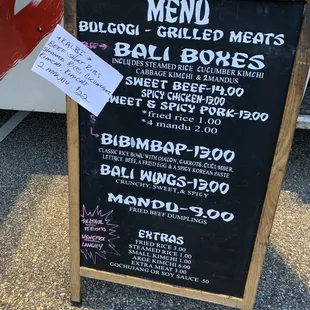 MENU
BULGOGI - GRILLED MEATS
BALI BOXES
INCLUDES STEAMED RICE CUCUMBER KIMCHI
CABBAGE KIMCHI & 2 MANDU
SWEET BEEF-14.00
SPICY CHICKEN-13.00
SWEET & SPICY PORK-13.00
*fried rice 1.00
*4 mandu 2.00
BIBIMBAP-13.00
CLASSIC RICE BOWL WITH DAIKON, CARROTS, CUCUMBER,
LETTUCE, BEEF, A FRIED EGG & A SPICY KOREAN PASTE
BALI WINGS-13.00
CRUNCHY, SWEET, & SPICY
MANDU-9.00
FRIED BEEF DUMPLINGS
EXTRAS
FRIED RICE 3.00
STEAMED RICE 2.00
SMALL KIMCHI 1.00
LARGE KIMCHI 6.00
EXTRA MEAT 3.00
GOCHUJANG OR SOY SAUCE .50
KALBI
BEEF SHORT RIBS
2 MANDU $22